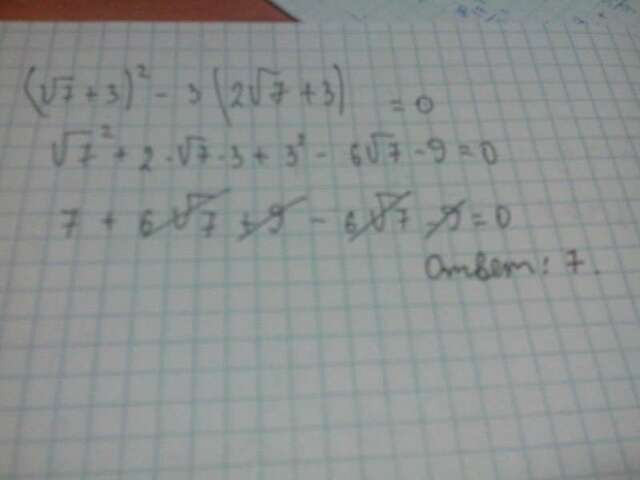 (√7 + 3)² - 3 (2√7 + 3) = 0
√7² + 2 · √7 · 3 + 3² - 6√7 - 9 = 0
7 + 6√7 + 9 - 6√7 - 9 = 0
Ответ: 7.